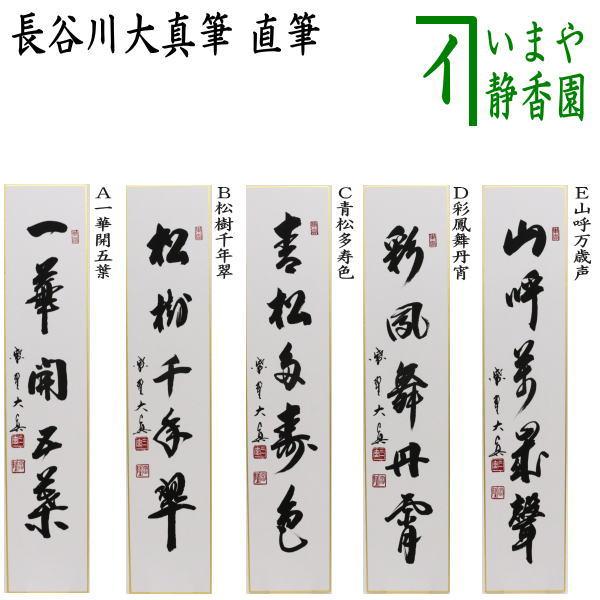 長谷川大真筆 直筆
いまや
静香園
A一華開五葉
一華開五葉
大真
B松樹千年翠
松樹千年翠
大真
C青松多寿色
青松多壽色
大真
D彩鳳舞丹宵
彩鳳舞丹霄
大真
E山呼万歳声
山呼萬歳聲
大真